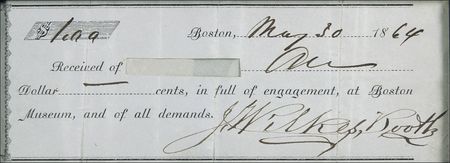 $1.00 Boston, May 30 1864
Received of One
Dollar cents, in full of engagement, at Boston
Museum, and of all demands.
J. Wilkes Booth